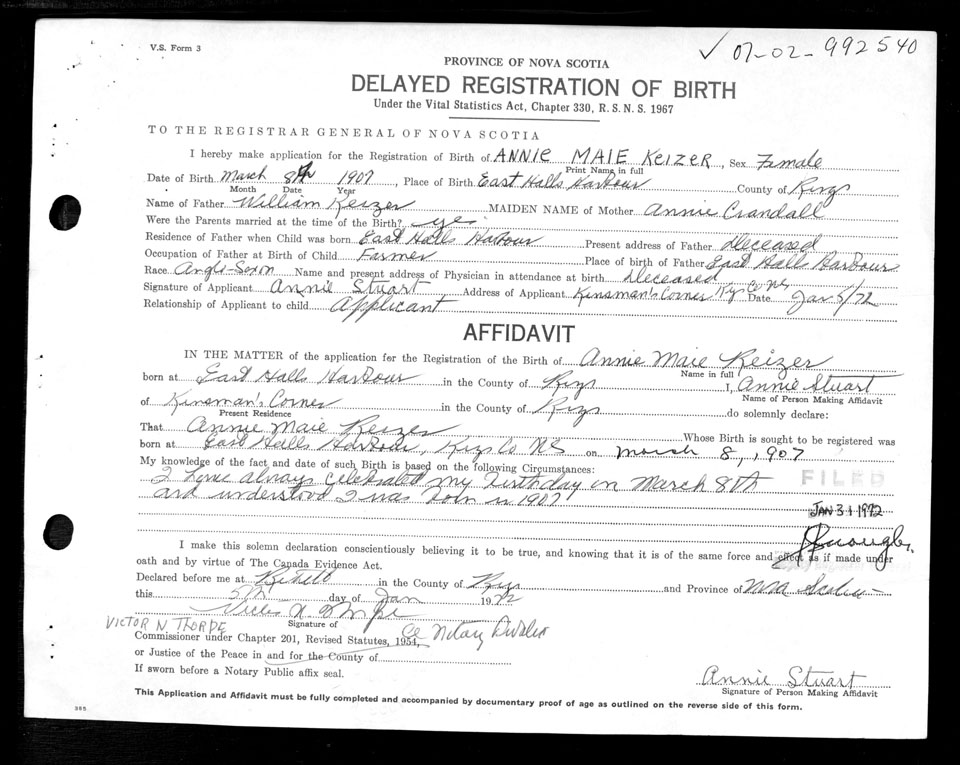 V.S. Form 3
✓ 07-02-992540
PROVINCE OF NOVA SCOTIA
DELAYED REGISTRATION OF BIRTH
Under the Vital Statistics Act, Chapter 330, R.S.N.S. 1967
TO THE REGISTRAR GENERAL OF NOVA SCOTIA
I hereby make application for the Registration of Birth of ANNIE MAIE KEIZER, Sex Female
Print Name in full
Date of Birth March 8th 1907, Place of Birth East Halls Harbour County of Kings
Month Date Year
Name of Father William Keizer MAIDEN NAME of Mother Annie Crandall
Were the Parents married at the time of the Birth? yes
Residence of Father when Child was born East Halls Harbour Present address of Father deceased
Occupation of Father at Birth of Child Farmer Place of birth of Father East Halls Harbour
Race Anglo-Sexon Name and present address of Physician in attendance at birth Deceased
Signature of Applicant Annie Stuart Address of Applicant Kinsman's Corner Kgs Co NS Date Jan 5/72
Relationship of Applicant to child Applicant
AFFIDAVIT
IN THE MATTER of the application for the Registration of the Birth of Annie Maie Keizer
Name in full
born at East Halls Harbour in the County of Kings I, Annie Stuart
Name of Person Making Affidavit
of Kinsman's Corner in the County of Kings do solemnly declare:
Present Residence
That Annie Maie Keizer Whose Birth is sought to be registered was
born at East Halls Harbour, Kings Co NS on March 8, 1907
My knowledge of the fact and date of such Birth is based on the following Circumstances:
I have always celebrated my birthday on March 8th
and understood I was born in 1907
FILED
JAN 31 1972
I make this solemn declaration conscientiously believing it to be true, and knowing that it is of the same force and effect as if made under
oath and by virtue of The Canada Evidence Act.
Declared before me at in the County of Kings and Province of Nova Scotia
this 5th day of Jan 1972
Signature of
VICTOR N THORPE
Commissioner under Chapter 201, Revised Statutes, 1954, Notary
or Justice of the Peace in and for the County of
If sworn before a Notary Public affix seal.
Annie Stuart
Signature of Person Making Affidavit
This Application and Affidavit must be fully completed and accompanied by documentary proof of age as outlined on the reverse side of this form.